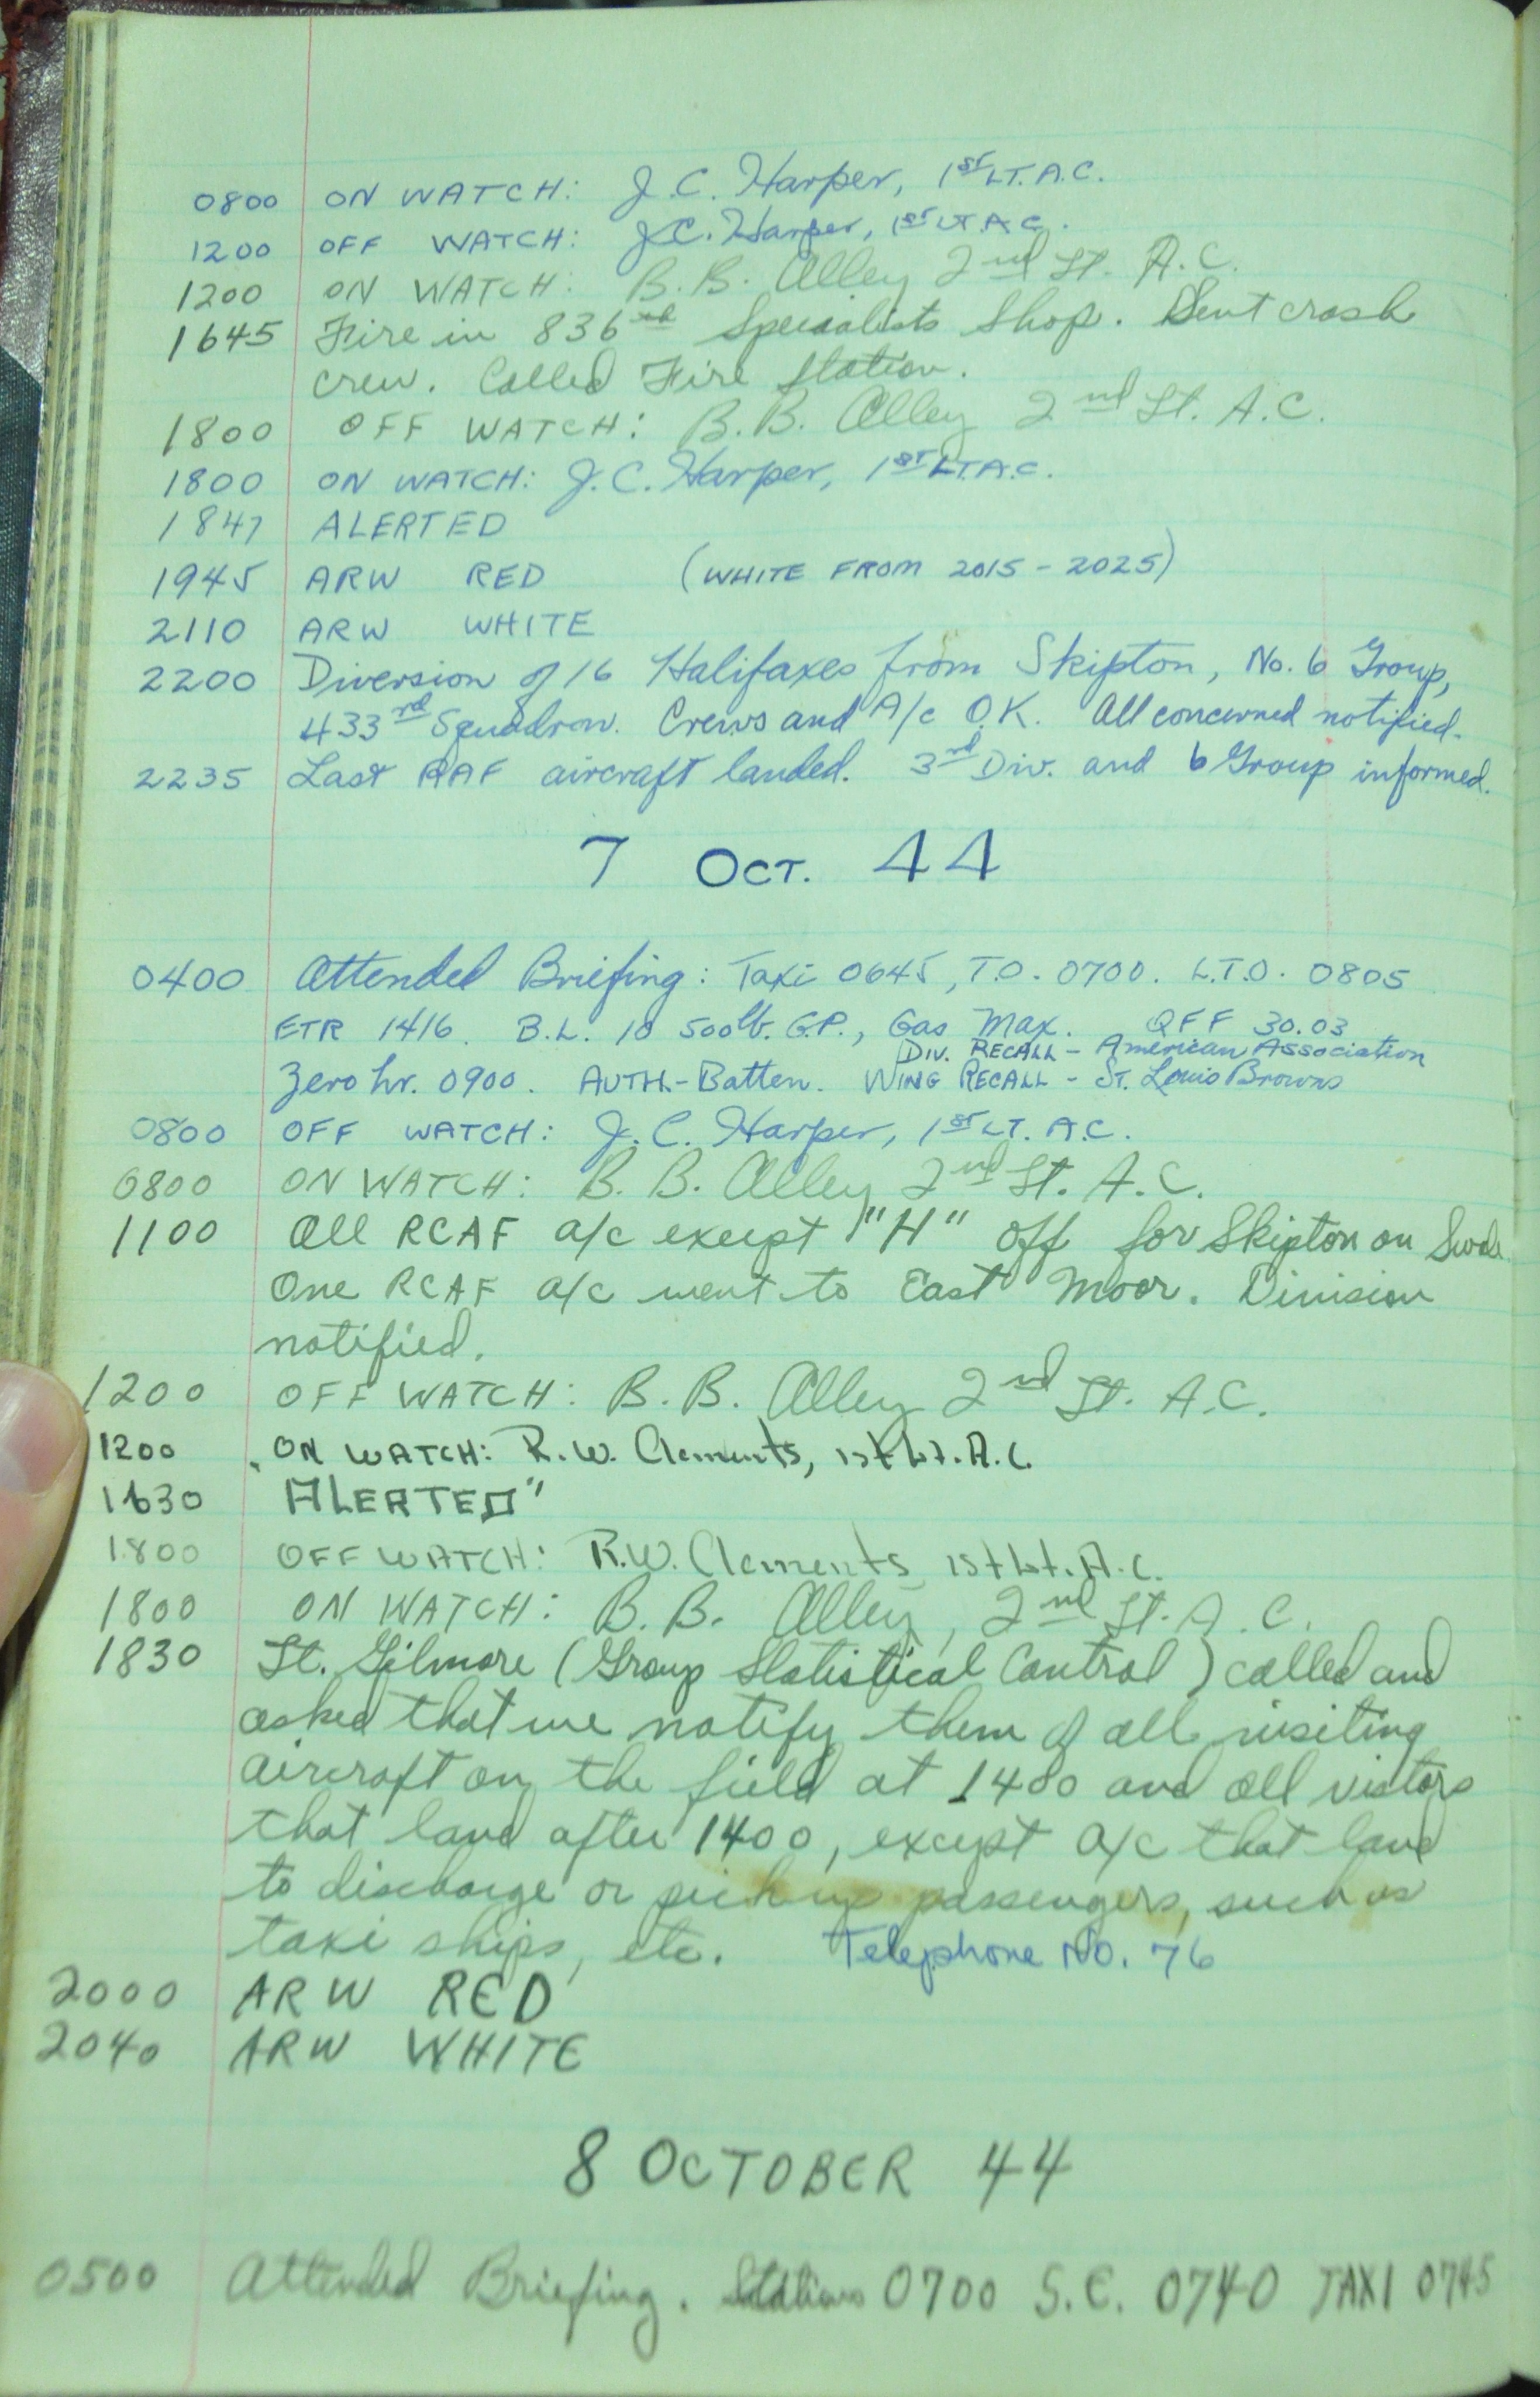 0800 ON WATCH: J.C. Harper, 1ST LT. A.C.
1200 OFF WATCH: J.C. Harper, 1ST LT. A.C.
1200 ON WATCH: B.B. Alley 2nd Lt. A.C.
1645 Fire in 836th Specialists Shop. Sent crash
crew. Called Fire Station.
1800 OFF WATCH: B.B. Alley 2nd Lt. A.C.
1800 ON WATCH: J.C. Harper, 1ST LT. A.C.
1847 ALERTED
1945 ARW RED (WHITE FROM 2015 - 2025)
2110 ARW WHITE
2200 Diversion of 16 Halifaxes from Skipton, No. 6 Group,
433rd Squadron. Crews and A/c O.K. All concerned notified.
2235 Last RAF aircraft landed. 3rd Div. and 6 Group informed.
7 OCT. 44
0400 Attended Briefing: Taxi 0645, T.O. 0700. L.T.O. 0805
ETR 1416. B.L. 10 500 lb. G.P., Gas Max. QFF 30.03
DIV. RECALL - American Association
Zero hr. 0900. AUTH.-Batten. WING RECALL - ST. Louis Browns
0800 OFF WATCH: J.C. Harper, 1ST LT. A.C.
0800 ON WATCH: B.B. Alley 2nd Lt. A.C.
1100 All RCAF a/c except "H" off for Skipton on Swale
One RCAF a/c went to East Moor. Division
notified.
1200 OFF WATCH: B.B. Alley 2nd Lt. A.C.
1200 ON WATCH: R.W. Clements, 1st Lt. A.C.
1630 "ALERTED"
1800 OFF WATCH: R.W. Clements 1st Lt. A.C.
1800 ON WATCH: B.B. Alley, 2nd Lt. A.C.
1830 Lt. Gilmore (Group Statistical Control) called and
asked that we notify them of all visiting
aircraft on the field at 1400 and all visitors
that land after 1400, except a/c that land
to discharge or pick up passengers, such as
taxi ships, etc. Telephone No. 76
2000 ARW RED
2040 ARW WHITE
8 OCTOBER 44
0500 Attended Briefing. Stations 0700 S.E. 0740 TAXI 0745